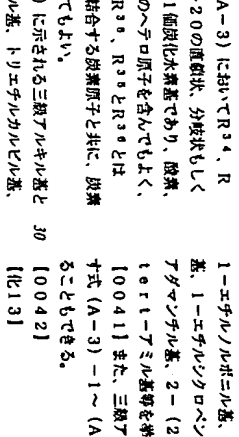 A－3）においてR³⁴、R
～20の直鎖状、分岐状もしく
1価炭化水素基であり、酸素、
のヘテロ原子を含んでもよく、
R³⁶、R³⁵とR³⁶とは
結合する炭素原子と共に、炭素
てもよい。
）に示される三級アルキル基と
ル基、トリエチルカルビル基、
30
1－エチルノルボニル基、
基、1－エチルシクロペン
アダマンチル基、2－（2
tert－アミル基等を挙
【0041】また、三級ア
す式（A－3）－1～（A
ることもできる。
【0042】
【化13】